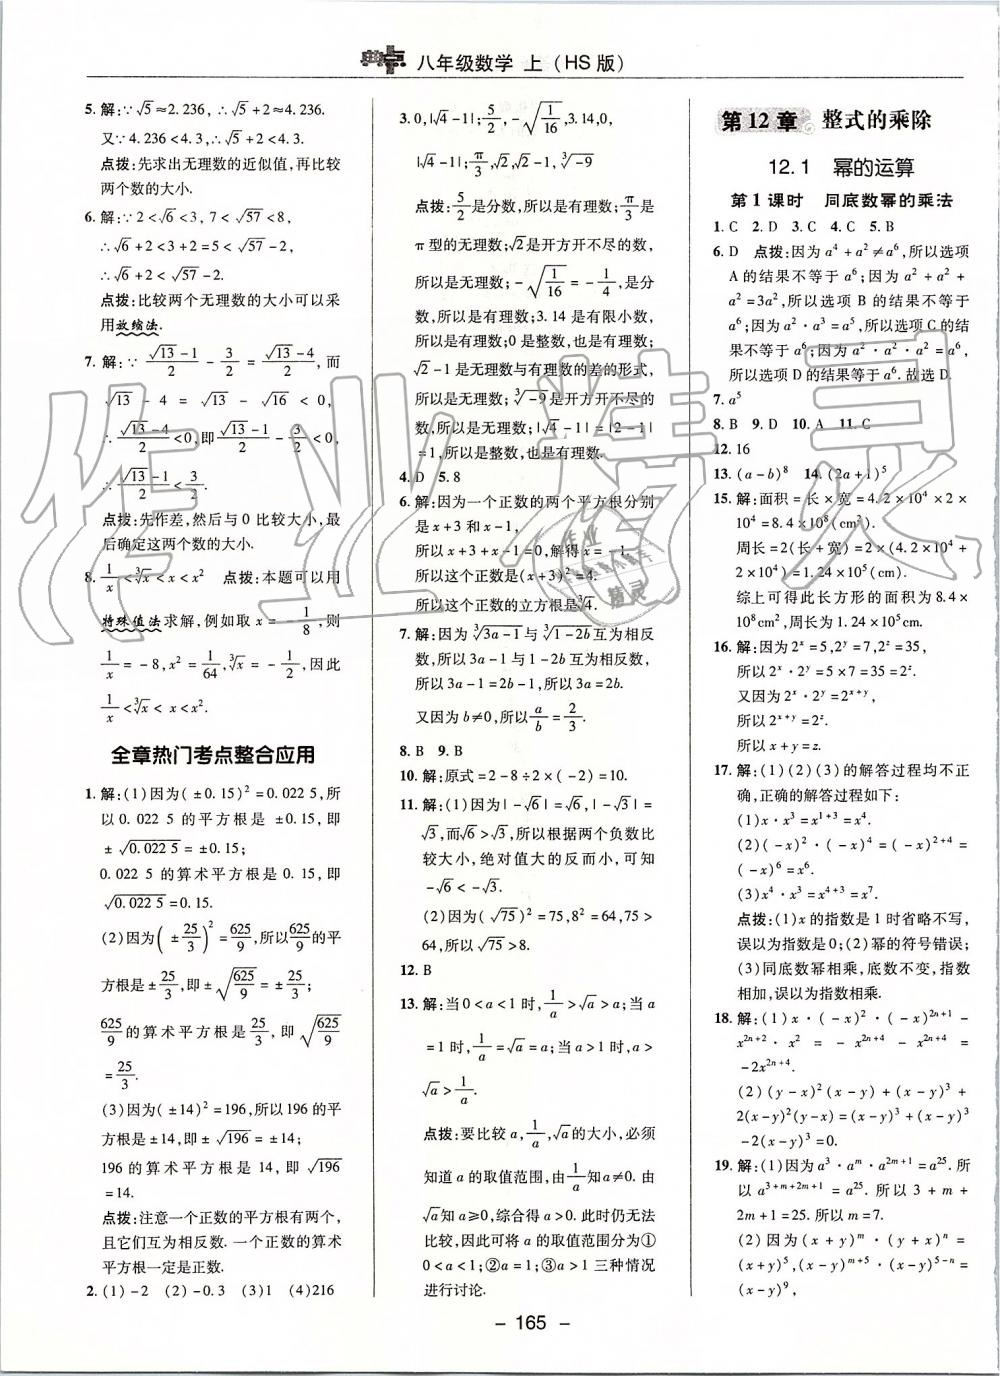 典点 八年级数学 上(HS版)
5. 解:∵√5≈2.236,∴√5+2≈4.236.
又∵4.236<4.3,∴√5+2<4.3.
点拨:先求出无理数的近似值,再比较
两个数的大小.
6. 解:∵2<√6<3,7<√57<8,
∴√6+2<3+2=5<√57-2,
∴√6+2<√57-2.
点拨:比较两个无理数的大小可以采
用放缩法.
7. 解:∵(√13-1)/2-3/2=(√13-4)/2,而
√13-4=√13-√16<0,
∴(√13-4)/2<0,即(√13-1)/2-3/2<0,
∴(√13-1)/2<3/2.
点拨:先作差,然后与0比较大小,最
后确定这两个数的大小.
8. 1/x<∛x<x<x² 点拨:本题可以用
特殊值法求解,例如取x=-1/8,则
1/x=-8,x²=1/64,∛x=-1/2,因此
1/x<∛x<x<x².
全章热门考点整合应用
1. 解:(1)因为(±0.15)²=0.022 5,所
以0.022 5的平方根是±0.15,即
±√0.022 5=±0.15;
0.022 5的算术平方根是0.15,即
√0.022 5=0.15.
(2)因为(±25/3)²=625/9,所以625/9的平
方根是±25/3,即±√(625/9)=±25/3;
625/9的算术平方根是25/3,即√(625/9)
=25/3.
(3)因为(±14)²=196,所以196的平
方根是±14,即±√196=±14;
196的算术平方根是14,即√196
=14.
点拨:注意一个正数的平方根有两个,
且它们互为相反数.一个正数的算术
平方根一定是正数.
2. (1)-2 (2)-0.3 (3)1 (4)216
3. 0,|√4-1|;5/2,-√(1/16),3.14,0,
|√4-1|;π/3,√2,√2-1,∛-9
点拨:5/2是分数,所以是有理数;π/3是
π型的无理数;√2是开方开不尽的数,
所以是无理数;-√(1/16)=-1/4,是分
数,所以是有理数;3.14是有限小数,
所以是有理数;0是整数,也是有理数;
√2-1是无理数与有理数的差的形式,
所以是无理数;∛-9是开方开不尽的
数,所以是无理数;|√4-1|=|2-1|
=1,所以是整数,也是有理数.
4. D 5. 8
6. 解:因为一个正数的两个平方根分别
是x+3和x-1,
所以x+3+x-1=0,解得x=-1.
所以这个正数是(x+3)²=4.
所以这个正数的立方根是∛4.
7. 解:因为∛3a-1与∛1-2b互为相反数,
所以3a-1与1-2b互为相反数,
所以3a-1=2b-1,所以3a=2b.
又因为b≠0,所以a/b=2/3.
8. B 9. B
10. 解:原式=2-8÷2×(-2)=10.
11. 解:(1)因为|-√6|=√6,|-√3|=
√3,而√6>√3,所以根据两个负数比
较大小,绝对值大的反而小,可知
-√6<-√3.
(2)因为(√75)²=75,8²=64,75>
64,所以√75>8.
12. B
13. 解:当0<a<1时,1/a>√a>a;当a
=1时,1/a=√a=a;当a>1时,a>
√a>1/a.
点拨:要比较a,1/a,√a的大小,必须
知道a的取值范围,由1/a知a≠0,由
√a知a≥0,综合得a>0.此时仍无法
比较,因此可将a的取值范围分为①
0<a<1;②a=1;③a>1三种情况
进行讨论.
第12章 整式的乘除
12.1 幂的运算
第1课时 同底数幂的乘法
1. C 2. D 3. C 4. C 5. B
6. D 点拨:因为a⁴+a²≠a⁶,所以选项
A的结果不等于a⁶;因为a²+a²+
a²=3a²,所以选项B的结果不等于
a⁶;因为a²·a³=a⁵,所以选项C的结
果不等于a⁶;因为a²·a²·a²=a⁶,
所以选项D的结果等于a⁶.故选D.
7. a⁵
8. B 9. D 10. A 11. C
12. 16
13. (a-b)⁸ 14. (2a+1)⁵
15. 解:面积=长×宽=4.2×10⁴×2×
10⁴=8.4×10⁸(cm²).
周长=2(长+宽)=2(4.2×10⁴+
2×10⁴)=1.24×10⁵(cm).
综上可得此长方形的面积为8.4×
10⁸cm²,周长为1.24×10⁵cm.
16. 解:因为2ˣ=5,2ʸ=7,2ᶻ=35,
所以2ˣ·2ʸ=5×7=35=2ᶻ.
又因为2ˣ·2ʸ=2ˣ⁺ʸ,
所以2ˣ⁺ʸ=2ᶻ.
所以x+y=z.
17. 解:(1)(2)(3)的解答过程均不正
确,正确的解答过程如下:
(1)x·x³=x¹⁺³=x⁴.
(2)(-x)²·(-x)⁴=(-x)²⁺⁴=
(-x)⁶=x⁶.
(3)x⁴·x³=x⁴⁺³=x⁷.
点拨:(1)x的指数是1时省略不写,
误以为指数是0;(2)幂的符号错误;
(3)同底数幂相乘,底数不变,指数
相加,误以为指数相乘.
18. 解:(1)x·(-x)²·(-x)²ⁿ⁺¹-
x²ⁿ⁺²·x²=-x²ⁿ⁺⁴-x²ⁿ⁺⁴=
-2x²ⁿ⁺⁴.
(2)(y-x)²(x-y)+(x-y)³+
2(x-y)²(y-x)=(x-y)³+(x-y)³
-2(x-y)³=0.
19. 解:(1)因为a³·aᵐ·a²ᵐ⁺¹=a²⁵.所
以a³⁺ᵐ⁺²ᵐ⁺¹=a²⁵.所以3+m+
2m+1=25.所以m=7.
(2)因为(x+y)ᵐ·(y+x)ⁿ=
(x+y)⁵,(x-y)ᵐ⁺⁵·(x-y)⁵⁻ⁿ=
(x-y)⁹,
- 165 -
作业精灵
作业
精灵